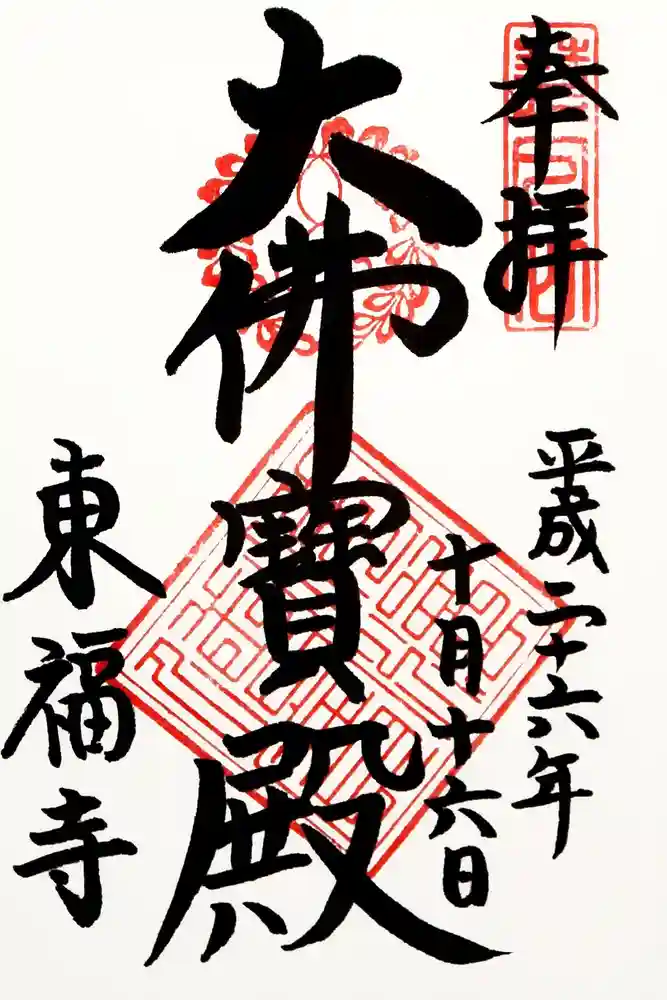 奉拝
平成二十六年
十月十六日
大佛寶殿
東福寺